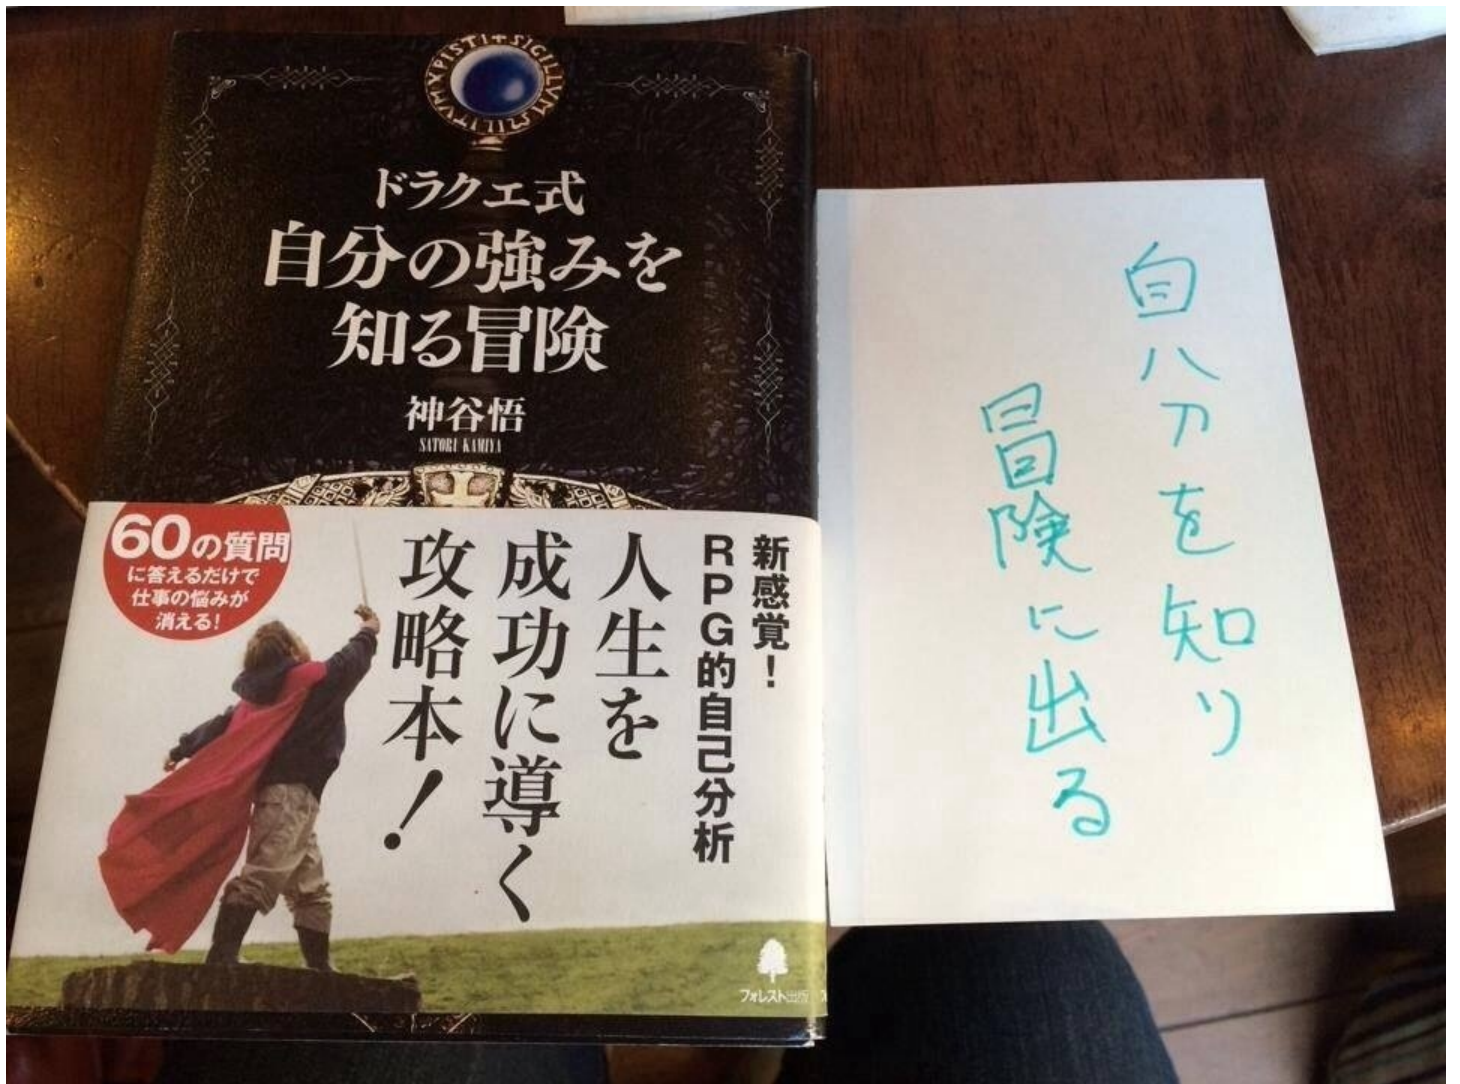 ドラクエ式
自分の強みを
知る冒険
神谷悟
SATORI KAMIYA
60の質問
に答えるだけで
仕事の悩みが
消える!
新感覚!
RPG的自己分析
人生を
成功に導く
攻略本!
フォレスト出版
自分を知り
冒険に出る